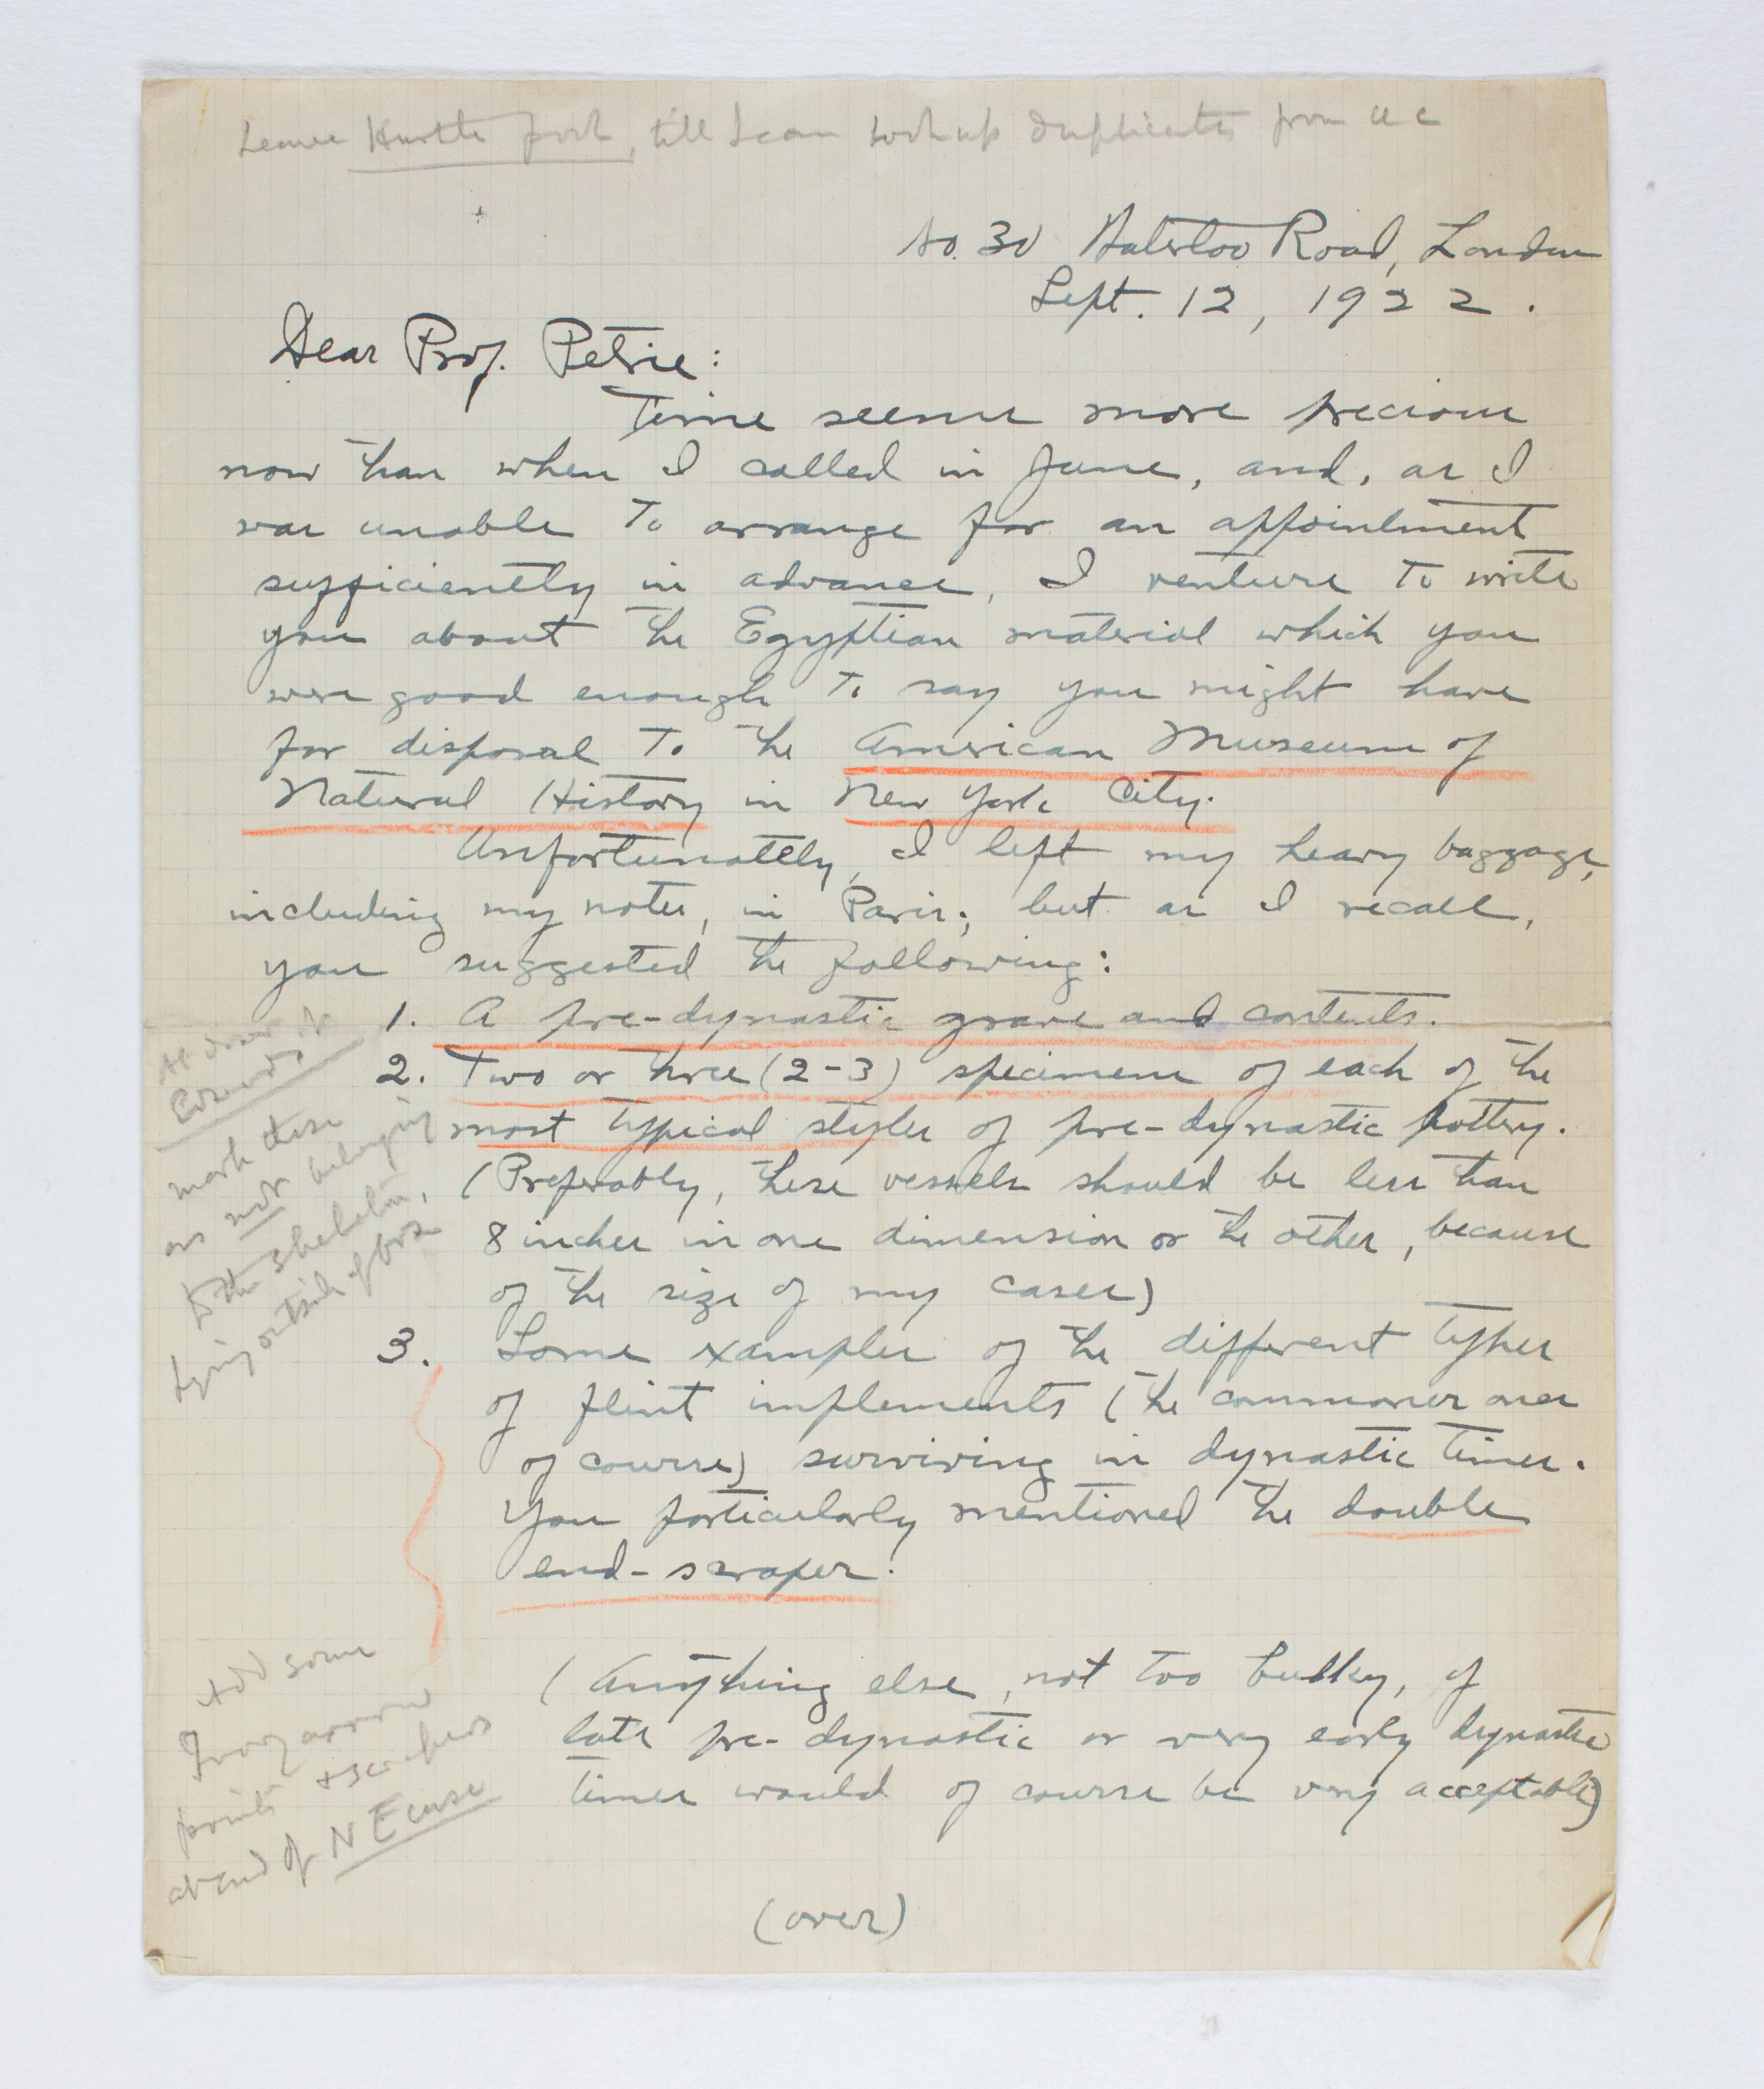 Leave till I can look up duplicates from U C
No. 30 Waterloo Road, London
Sept. 12, 1922.
Dear Prof. Petrie:
Time seems more precious
now than when I called in June, and, as I
was unable to arrange for an appointment
sufficiently in advance, I venture to write
you about the Egyptian material which you
were good enough to say you might have
for disposal to the American Museum of
Natural History in New York City.
Unfortunately, I left my heavy baggage,
including my notes, in Paris; but as I recall,
you suggested the following:
1. A pre-dynastic grave and contents.
2. Two or three (2-3) specimens of each of the
most typical styles of pre-dynastic pottery.
(Preferably, these vessels should be less than
8 inches in one dimension or the other, because
of the size of my cases)
3. Some examples of the different types
of flint implements (the commoner ones
of course) surviving in dynastic times.
You particularly mentioned the double
end-scraper.
(Anything else, not too bulky, of
late pre-dynastic or very early dynastic
times would of course be very acceptable)
(over)
At door of
Edwards
mark these
as not belonging
to the skeleton,
lying outside of box
Add some
Ivory arrow
points + scrapers
at end of N E case